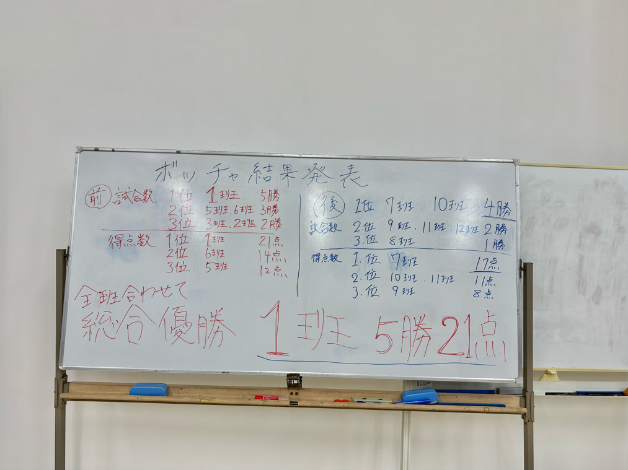 ボッチャ結果発表
前 試合数 1位 1班 5勝
2位 5班.6班 3勝
3位 3班.2班 2勝
得点数 1位 1班 21点
2位 6班 14点
3位 5班 12点
後 1位 7班. 10班. 4勝
試合数 2位 9班.11班.12班 2勝
3.位 8班 1勝
得点数 1.位 7班 17点
2.位 10班.11班 11点
3.位 9班 8点
全班合わせて
総合優勝 1班 5勝21点